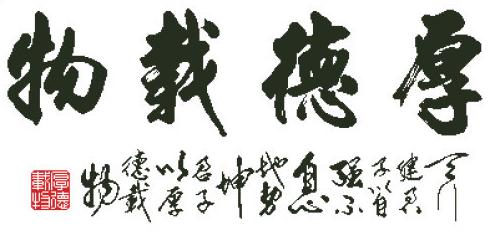 厚德載物
天行
健君
子以自
强不
息
地势
坤
君子
以厚
德載
物
厚德載物